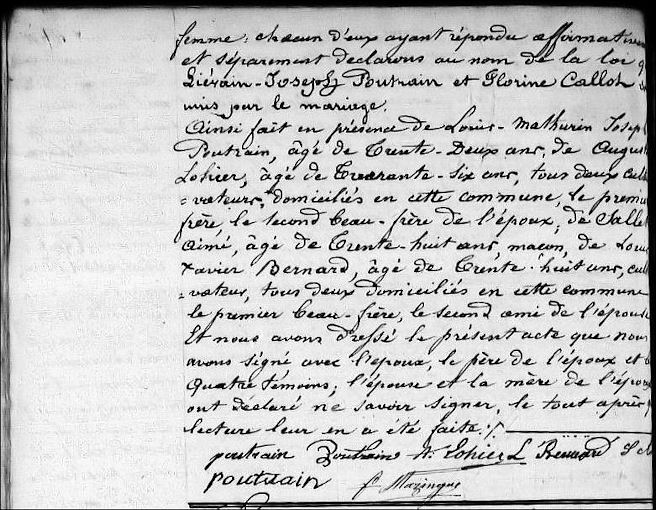 femme; chacun d'eux ayant répondu affirmativem
et séparement declarons au nom de la loi q
Liévain-Joseph Poutrain et Florine Callot
unis pour le mariage.
Ainsi fait en présence de Louis-Mathurin Josep
Poutrain, âgé de Trente-Deux ans, de August
Lohier, âgé de Quarante-six ans, tous deux cult
=vateurs, domiciliés en cette commune, le premier
frère, le second beau-frère de l'époux; de Callet
Aimé, âgé de Trente-huit ans, maçon, de Louis
Xavier Bernard, âgé de Trente-huit ans, cul
=vateur, tous deux domiciliés en cette commune
le premier beau-frère, le second ami de l'épouse
Et nous avons dressé le présent acte que nous
avons signé avec l'époux, le père de l'époux et
Quatre témoins, l'épouse et la mère de l'époux
ont déclaré ne savoir signer, le tout après
lecture leur en a été faite./.
poutrain Poutrain A. Lohier L Bernard
poutrain